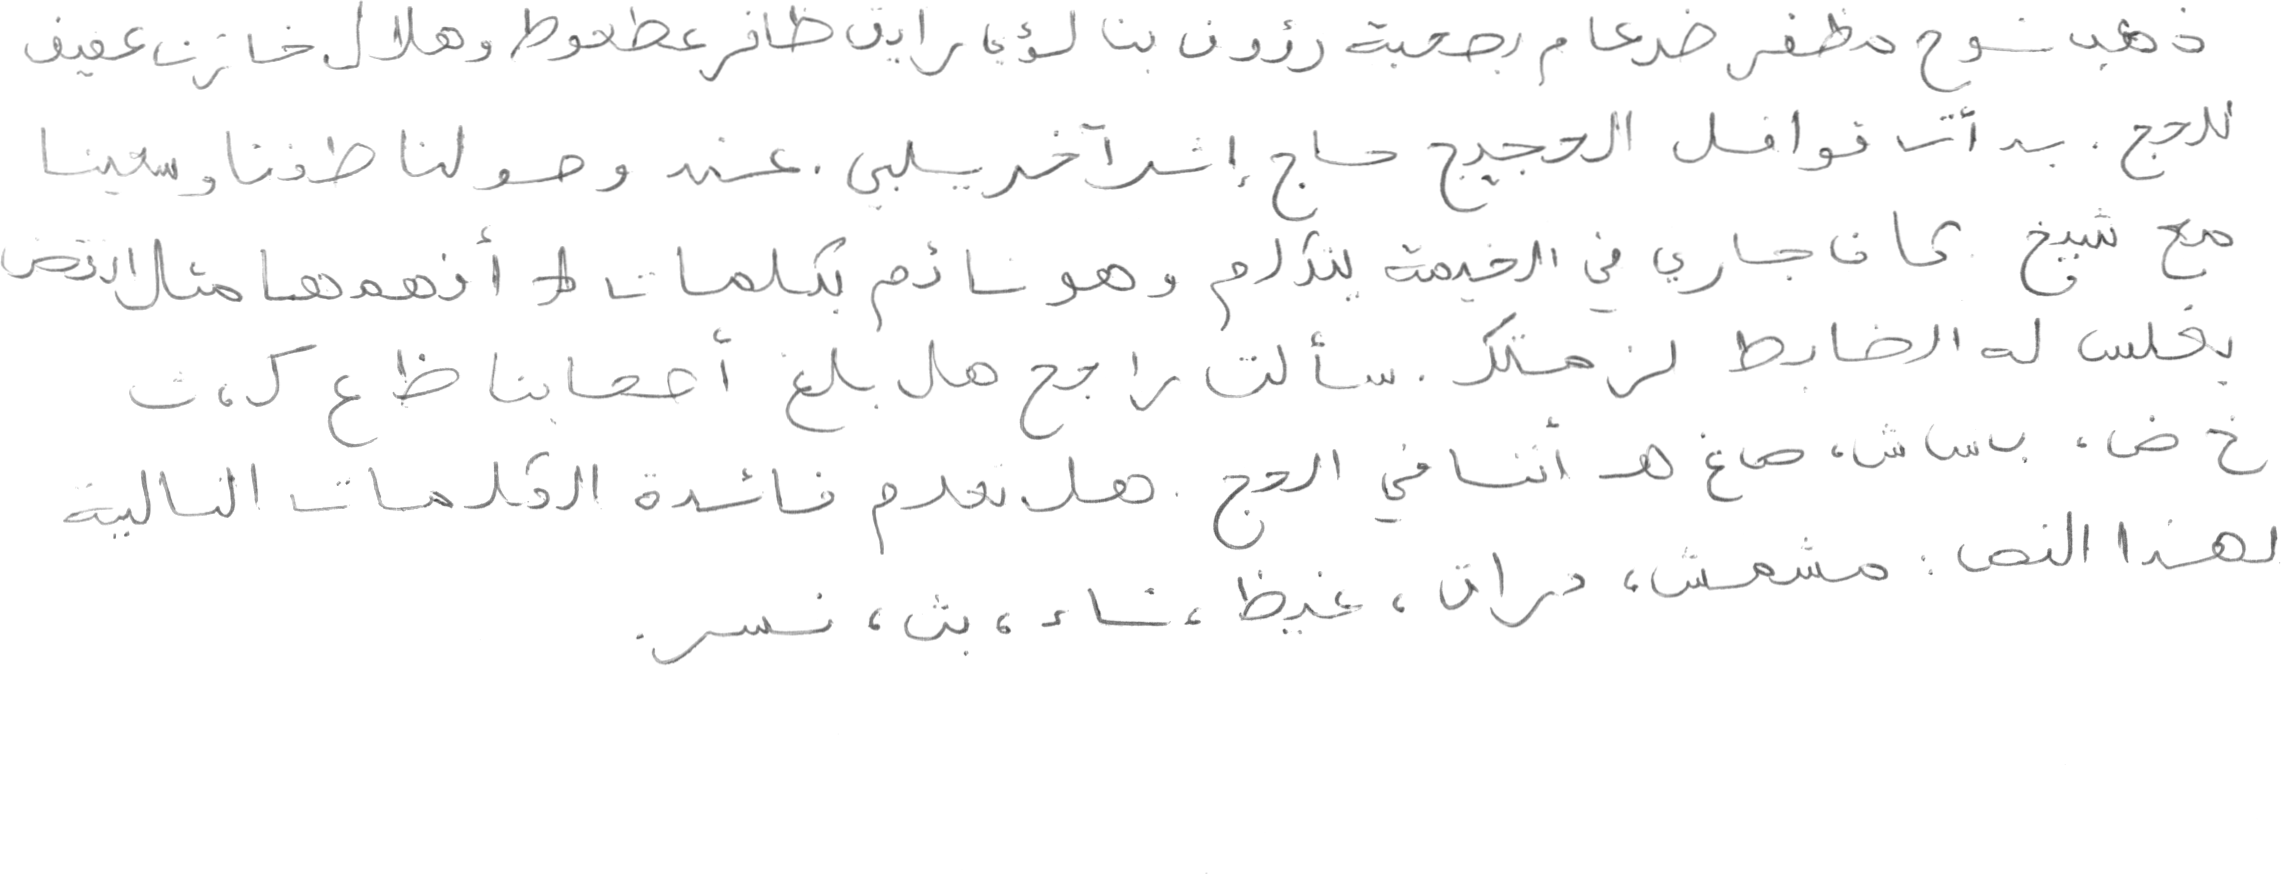 ذهب نوح مظفر ضرغام بصحبة رؤوف بنا لؤي رايق ظافر عطعوط وهلال خازن عفيف
للحج . بدأت قوافل الحجيج حاج إثر آخر يلبي . عند وصولنا طفنا وسعينا
مع شيخ كان جاري في الخيمة يتكلم وهو نائم بكلمات لا أفهمها مثال انتض
بغلس له الضابط لزمتك . سألت راجح هل بلغ أصحابنا ظ ع ك ، ث
خ ض ، ب سا ش ، ص غ هـ أننا في الحج . هل تعلم فائدة الكلمات التالية
لهذا النص : مشمش ، مراق ، غيظ ، شاء ، بث ، نسر .